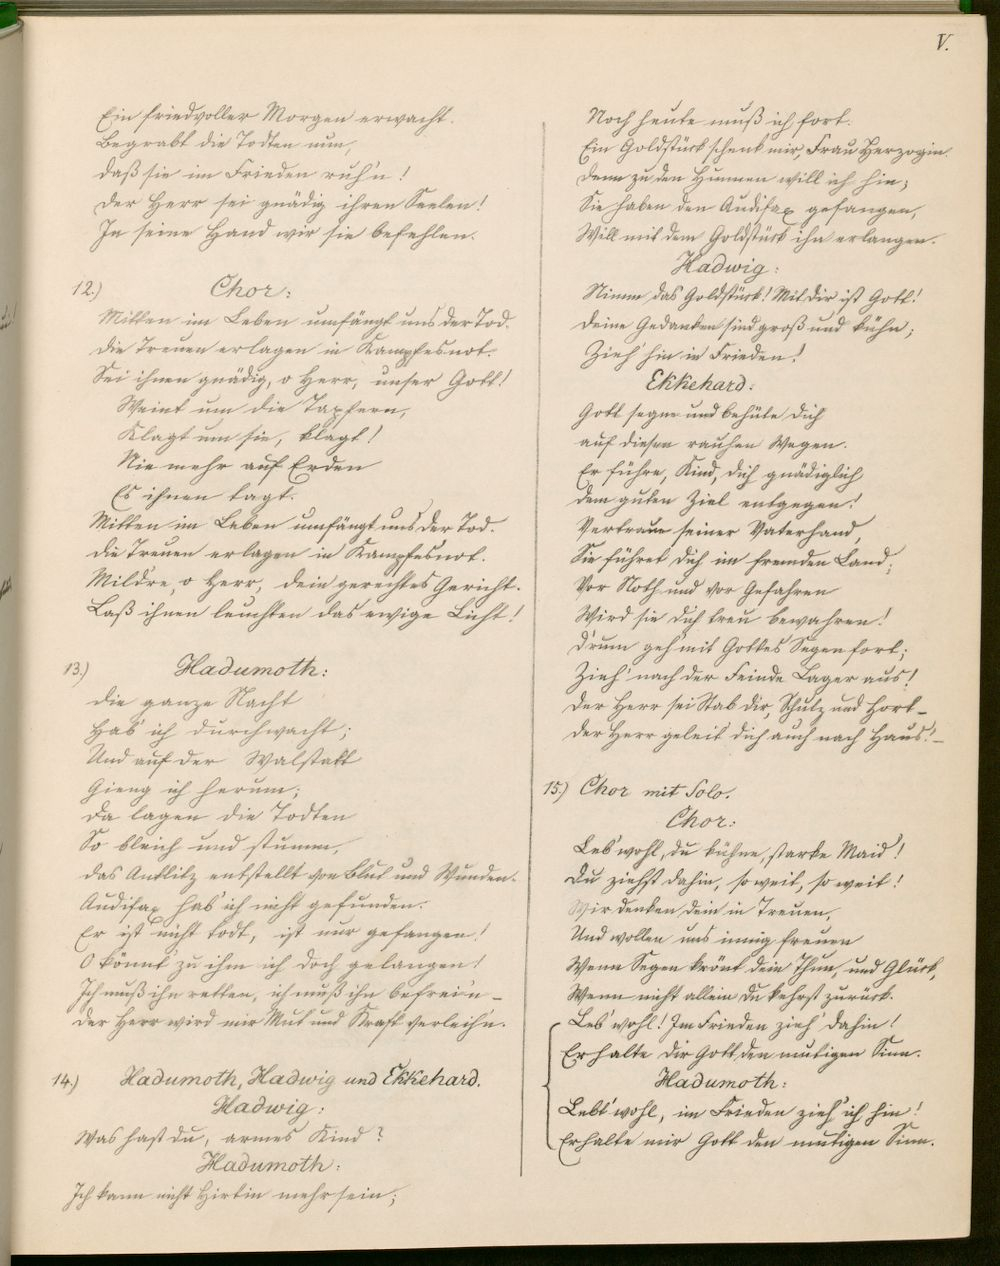 V.
Ein friedvoller Morgen erwacht.
Begrabt die Todten nun,
daß sie im Frieden ruh'n!
Der Herr sei gnädig ihren Seelen!
In seine Hand wir sie befehlen.
12.) Chor:
Mitten im Leben umfängt uns der Tod.
Die Treuen erlagen in Kampfesnot.
Sei ihnen gnädig, o Herr, unser Gott!
Weint um die Tapfern,
Klagt um sie, klagt!
Nie mehr auf Erden
Es ihnen tagt.
Mitten im Leben umfängt uns der Tod.
Die Treuen erlagen in Kampfesnot.
Mildre, o Herr, dein gerechtes Gericht.
Laß ihnen leuchten das ewige Licht!
13.) Hadumoth:
Die ganze Nacht
Hab' ich durchwacht;
Und auf der Walstatt
Gieng ich herum;
Da lagen die Todten
So bleich und stumm,
Das Antlitz entstellt von Blut und Wunden.
Audifax hab' ich nicht gefunden.
Er ist nicht todt, ist nur gefangen!
O könnt' zu ihm ich doch gelangen!
Ich muß ihn retten, ich muß ihn befrei'n –
Der Herr wird mir Mut und Kraft verleih'n.
14.) Hadumoth, Hadwig und Ekkehard.
Hadwig:
Was hast du, armes Kind?
Hadumoth:
Ich kann nicht Hirtin mehr sein;
Noch heute muß ich fort.
Ein Goldstück schenk mir, Frau Herzogin.
Denn zu den Hunnen will ich hin;
Sie haben den Audifax gefangen,
Will mit dem Goldstück ihn erlangen.
Hadwig:
Nimm das Goldstück! Mit dir ist Gott!
Deine Gedanken sind groß und kühn;
Zieh' hin in Frieden!
Ekkehard:
Gott segne und behüte dich
auf diesen rauhen Wegen.
Er führe, Kind, dich gnädiglich
dem guten Ziel entgegen!
Vertraue seiner Vaterhand,
Sie führet dich im fremden Land;
Vor Noth und vor Gefahren
Wird sie dich treu bewahren!
D'rum geh' mit Gottes Segen fort;
Zieh' nach der Feinde Lager aus!
Der Herr sei Stab dir, Schutz und Hort –
Der Herr geleit' dich auch nach Haus! –
15.) Chor mit Solo.
Chor:
Leb' wohl, du kühne, starke Maid!
Du ziehst dahin, so weit, so weit!
Wir denken dein in Treuen,
Und wollen uns innig freuen
Wenn Segen krönt dein Thun, und Glück,
Wenn nicht allein du kehrst zurück.
Leb' wohl! Im Frieden zieh' dahin!
Erhalte dir Gott den mutigen Sinn.
Hadumoth:
Lebt' wohl, im Frieden zieh' ich hin!
Erhalte mir Gott den mutigen Sinn.